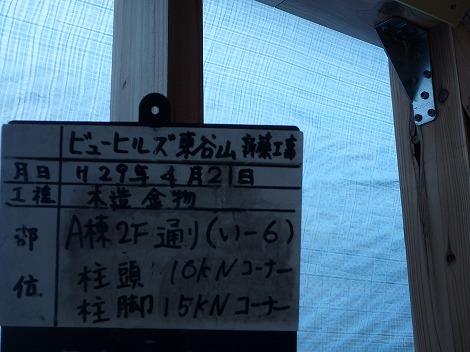 ビューヒルズ東谷山 新築工事
月日 H29年4月21日
工種 木造金物
部位 A棟2F通り(い-6)
柱頭 10kNコーナー
柱脚 15kNコーナー